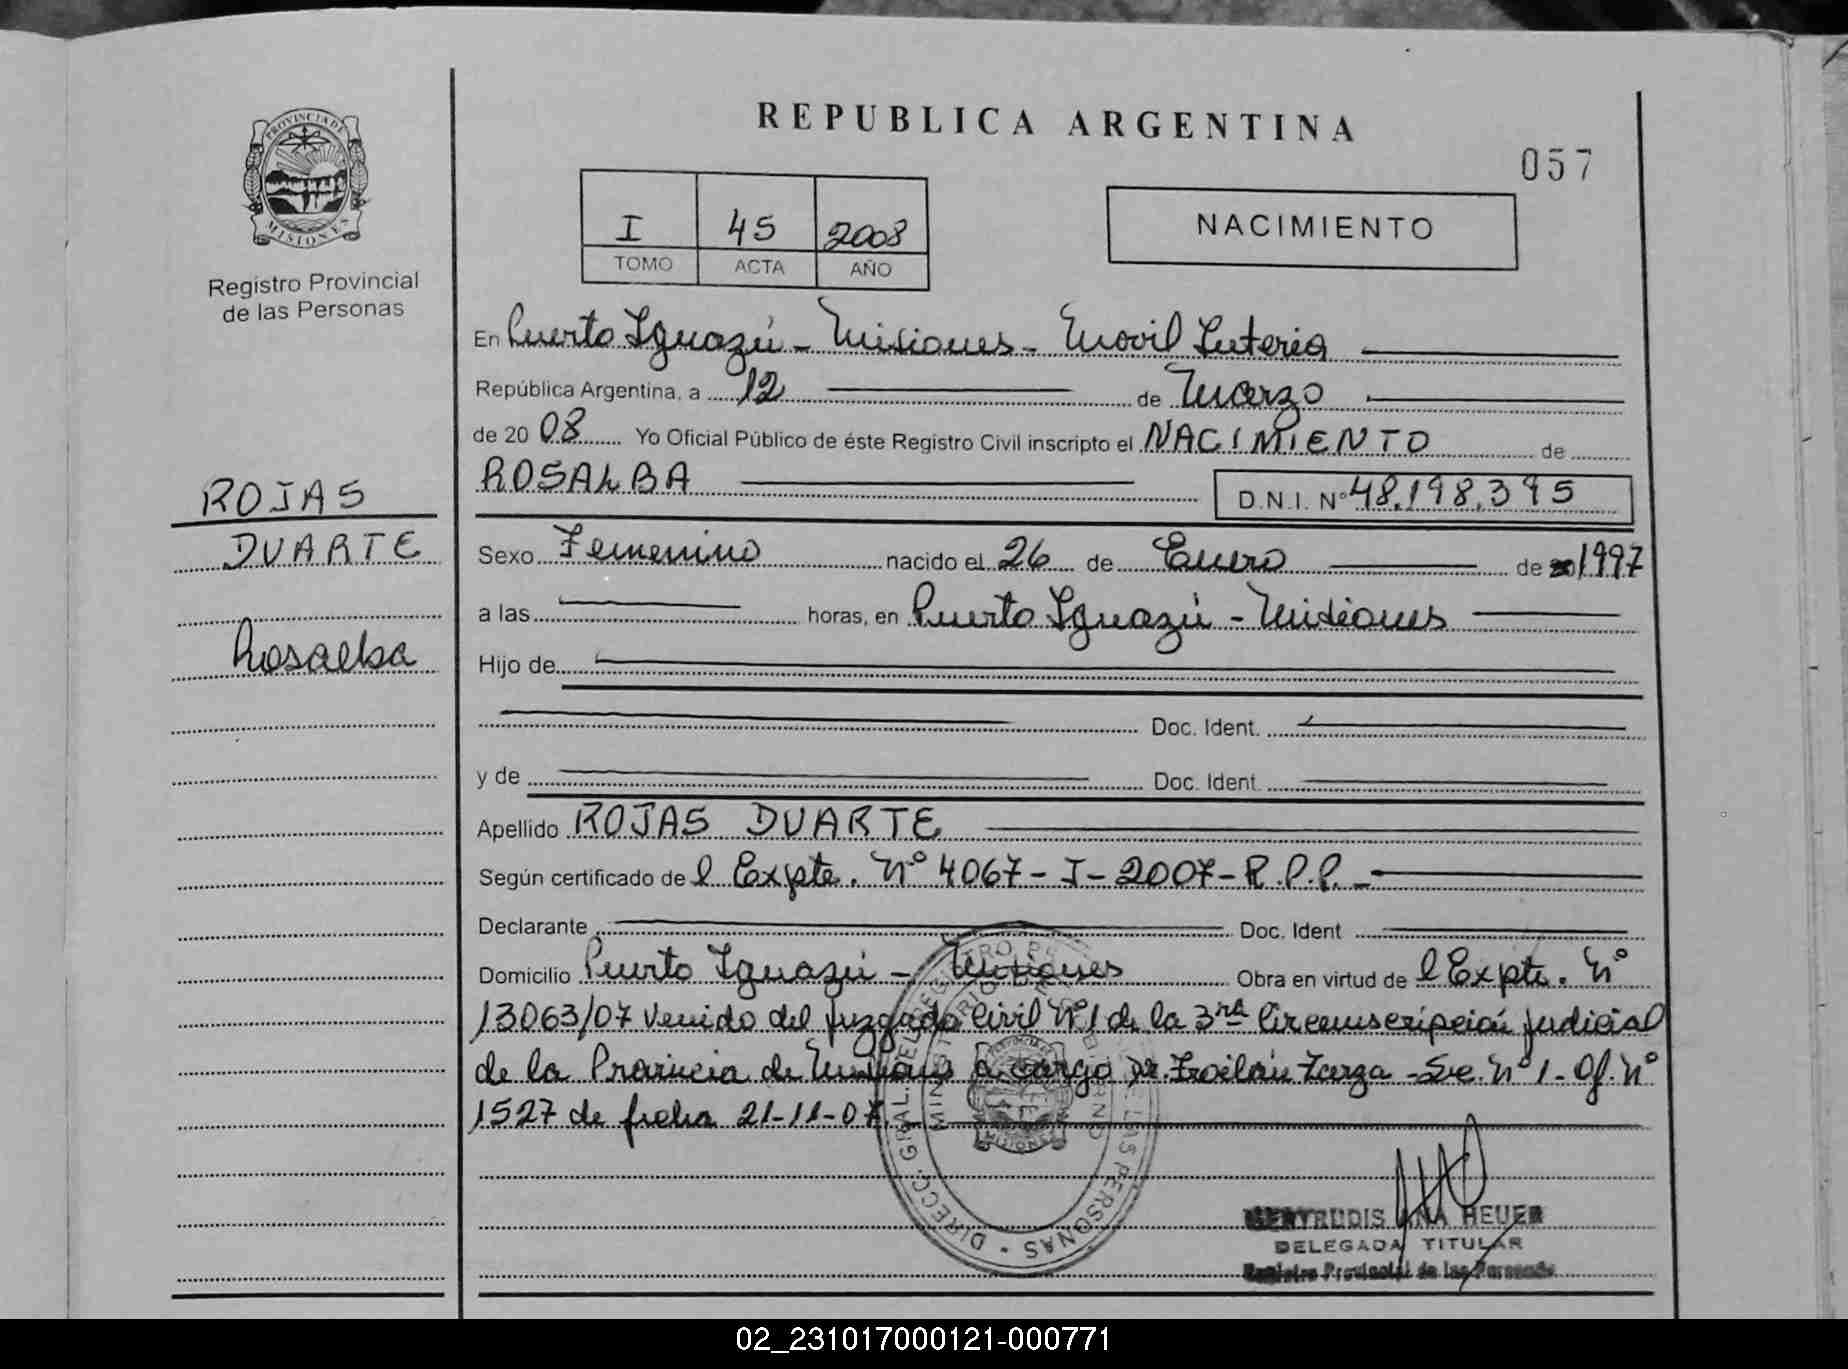 REPUBLICA ARGENTINA
057
PROVINCIA DE
MISIONES
Registro Provincial
de las Personas
I 45 2008
TOMO ACTA AÑO
NACIMIENTO
En Puerto Iguazú - Misiones - Movil Interior
República Argentina, a 12 de Marzo
de 20 08 Yo Oficial Público de éste Registro Civil inscripto el NACIMIENTO de
ROSALBA D.N.I. Nº 48.198.395
ROJAS
DUARTE
Rosalba
Sexo Femenino nacido el 26 de Enero de 1997
a las horas, en Puerto Iguazú - Misiones
Hijo de
Doc. Ident.
y de Doc. Ident.
Apellido ROJAS DUARTE
Según certificado de l Expte. Nº 4067-I-2007-R.P.P.
Declarante Doc. Ident
Domicilio Puerto Iguazú - Misiones Obra en virtud de l Expte. Nº
13063/07 venido del Juzgado Civil Nº 1 de la 3ra Circunscripción Judicial
de la Provincia de Misiones a cargo Dr. Froilán Zarza - Sec. Nº 1 - Of. Nº
1527 de fecha 21-11-07
DIRECC. GRAL. DEL REGISTRO DE LAS PERSONAS
GERTRUDIS ANA HEUER
DELEGADA TITULAR
Registro Provincial de las Personas
02_231017000121-000771